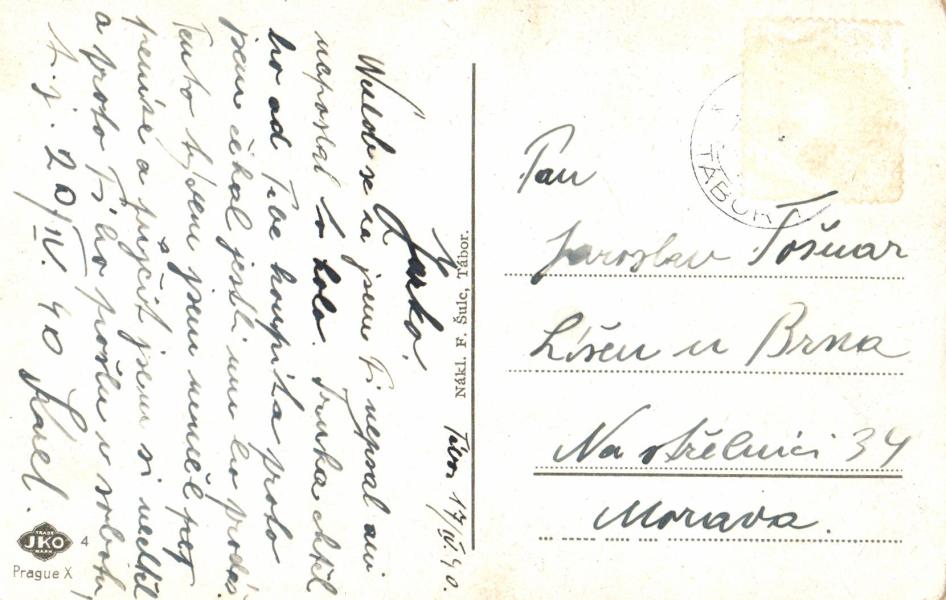 Tábor 17/IV. 40.
Jarko!
Nezlob se že jsem Ti nepsal ani
neposlal to kolo. Trnka chtěl
ho od Tebe koupit a proto
jsem čekal jestli mu ho prodáš.
Tento týden jsem neměl
peníze a půjčit jsem si nechtěl
a proto Ti ho pošlu v sobotu
t. j. 20/IV. 40 Karel.
Nákl. F. Šulc, Tábor.
TÁBOR
Pan
Jaroslav Tošnar
Líšeň u Brna
Na střelnici 34
Morava.
TRADE
JKO
MARK
4
Prague X